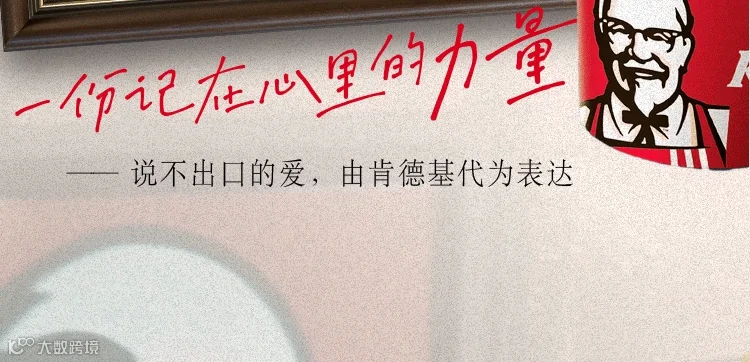 一份记在心里的力量
—— 说不出口的爱，由肯德基代为表达
K
大数跨境